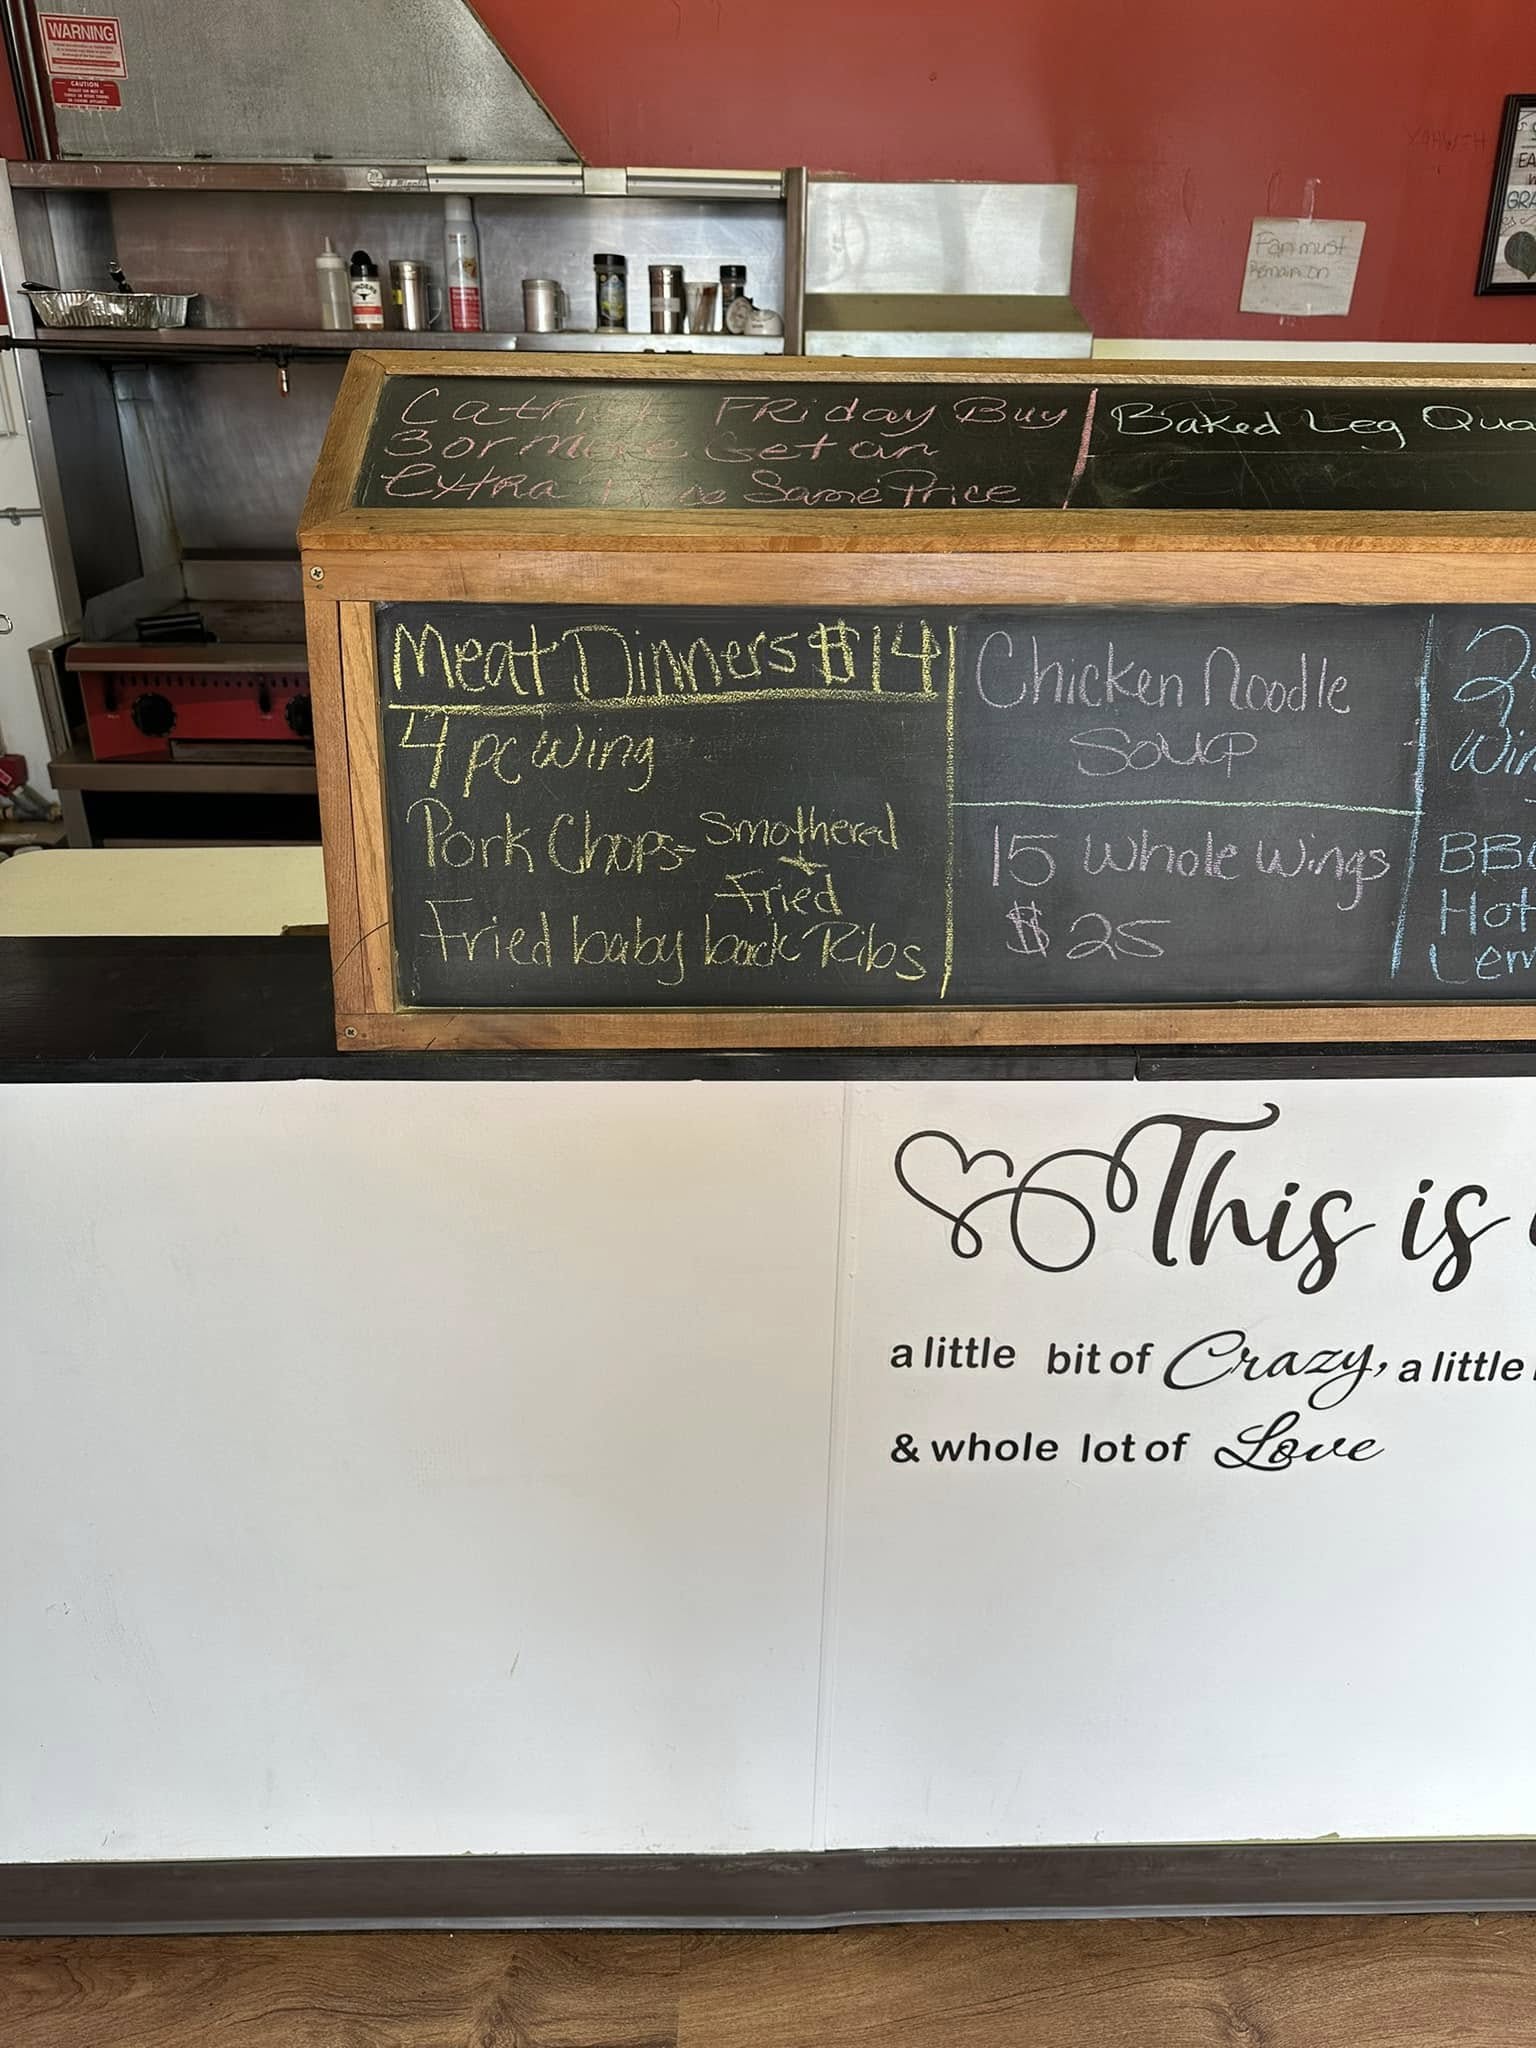 WARNING
CAUTION
Fan must
Remain on
EA
W
GRA
FRiday Buy
3 or More Get an
extra Same Price
Baked Leg Qua
Meat Dinners $14
4 pc wing
Pork Chops- Smothered
+
Fried
Fried baby back Ribs
Chicken Noodle
Soup
15 Whole Wings
$25
2
Win
BB
Hot
Lem
This is
a little bit of Crazy, a little
& whole lot of Love